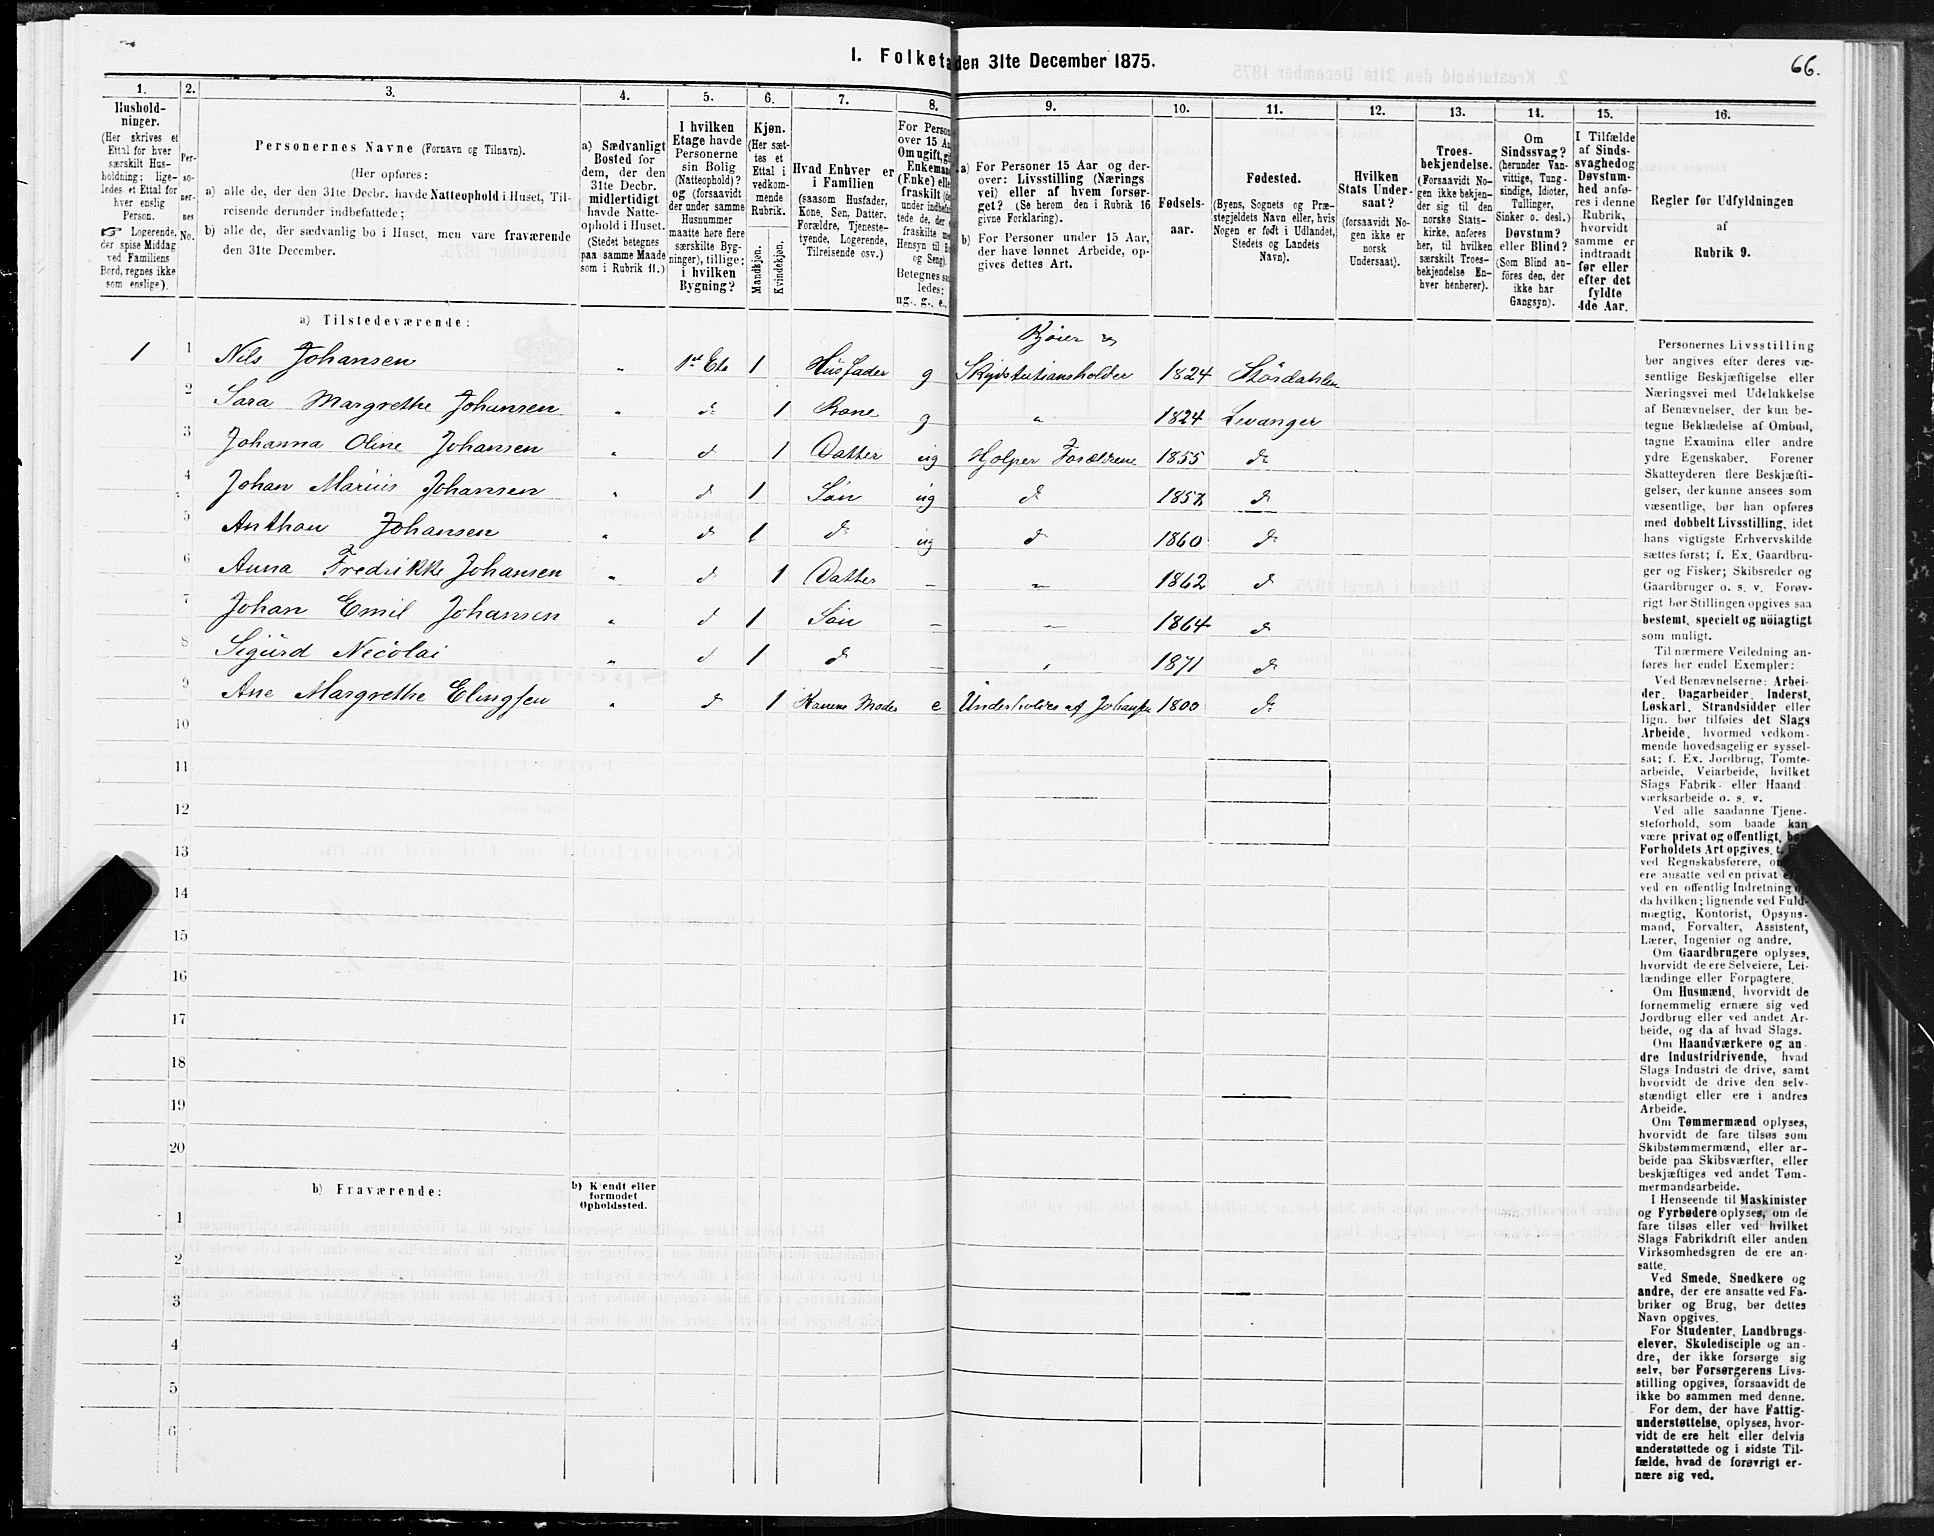 I. Folketa den 31te December 1875.
66.
1. 2. 3. 4. 5. 6. 7. 8. 9. 10. 11. 12. 13. 14. 15. 16.
Hushold-
ninger.
(Her skrives et
Ettal for hver
særskilt Hus-
holdning; lige-
ledes et Ettal for
hver enslig
Person.
☞ Logerende,
der spise Middag
ved Familiens
Bord, regnes ikke
som enslige).
Per-
so-
ner-
nes
No.
Personernes Navne (Fornavn og Tilnavn).
(Her opføres:
a) alle de, der den 31te Decbr. havde Natteophold i Huset, Til-
reisende derunder indbefattede;
b) alle de, der sædvanlig bo i Huset, men vare fraværende
den 31te December.
a) Sædvanligt
Bosted for
dem, der den
31te Decbr.
midlertidigt
havde Natte-
ophold i Huset.
(Stedet betegnes
paa samme Maade
som i Rubrik 11.)
I hvilken
Etage havde
Personerne
sin Bolig
(Natteophold)?
og (forsaavidt
der under samme
Husnummer
maatte høre flere
særskilte Byg-
ninger), tillige:
i hvilken
Bygning?
Kjøn.
(Her sæt-
tes et
Ettal i
vedkom-
mende
Rubrik.
Mandkjøn.
Kvindekjøn.
Hvad Enhver er
i Familien
(saasom Husfader,
Kone, Søn, Datter,
Forældre, Tjeneste-
tyende, Logerende,
Tilreisende osv.)
For Person
over 15 Aa
Om ugift, gi
Enkeman
(Enke) elle
fraskilt (de
under indbefat
tede de, der e
fraskilte me
Hensyn til B
og Seng).
Betegnes saa
ledes:
ug., g., e.,
a) For Personer 15 Aar og der-
over: Livsstilling (Nærings
vei) eller af hvem forsør-
get? (Se herom den i Rubrik 16
givne Forklaring).
b) For Personer under 15 Aar,
der have lønnet Arbeide, op-
gives dettes Art.
Fødsels-
aar.
Fødested.
(Byens, Sognets og Præ-
stegjeldets Navn eller, hvis
Nogen er født i Udlandet,
Stedets og Landets
Navn).
Hvilken
Stats Under-
saat?
(forsaavidt No-
gen ikke er
norsk
Undersaat).
Troes-
bekjendelse.
(Forsaavidt No-
gen ikke bekjen-
der sig til den
norske Stats-
kirke, anføres
her, til hvilken
særskilt Troes-
bekjendelse En-
hver henhører).
Om
Sindssvag?
(herunder Van-
vittige, Tung-
sindige, Idioter,
Tullinger,
Sinker o. desl.)
Døvstum?
eller Blind?
(Som Blind an-
føres den, der
ikke har
Gangsyn).
I Tilfælde
af Sinds-
svaghed og
Døvstum-
hed anfø-
res i denne
Rubrik,
hvorvidt
samme er
indtraadt
før eller
efter det
fyldte
4de Aar.
Regler før Udfyldningen
af
Rubrik 9.
a) Tilstedeværende:
Kjører og
1 1 Nils Johansen „ 1st Eta 1 Husfader g Skydstationsholder 1824 Størdahlen
2 Sara Margrethe Johansen „ do 1 Kone g „ 1824 Levanger
3 Johanna Oline Johansen „ d 1 Datter ug Hjælper Forældrene 1855 do
4 Johan Marius Johansen „ d 1 Søn ug d 1857 d
5 Anthon Johansen „ d 1 d ug d 1860 d
6 Anna Fredrikke Johansen „ d 1 Datter – „ 1862 d
7 Johan Emil Johansen „ d 1 Søn – „ 1864 d
8 Sigurd Nicolai „ d 1 d – „ 1871 d
9 Ane Margrethe Elingsen „ d 1 Konens Moder e Underholdes af Johansen 1800 do
10
11
12
13
14
15
16
17
18
19
20
b) Fraværende:
b) Kjendt eller
formodet
Opholdssted.
1
2
3
4
5
6
Personernes Livsstilling
bør angives efter deres væ-
sentlige Beskjæftigelse eller
Næringsvei med Udelukkelse
af Benævnelser, der kun be-
tegne Beklædelse af Ombud,
tagne Examina eller andre
ydre Egenskaber. Forener
Skatteyderen flere Beskjæfti-
gelser, der kunne ansees som
væsentlige, bør han opføres
med dobbelt Livsstilling, idet
hans vigtigste Erhvervskilde
sættes først; f. Ex. Gaardbru-
ger og Fisker; Skibsreder og
Gaardbruger o. s. v. Forøv-
rigt bør Stillingen opgives saa
bestemt, specielt og nöiagtigt
som muligt.
Til nærmere Veiledning an-
føres her endel Exempler:
Ved Benævnelserne: Arbei-
der, Dagarbeider, Inderst,
Løskarl, Strandsidder eller
lign. bør tilføies det Slags
Arbeide, hvormed vedkom-
mende hovedsagelig er syssel-
sat; f. Ex. Jordbrug, Tomte-
arbeide, Veiarbeide, hvilket
Slags Fabrik- eller Haand-
værksarbeide o. s. v.
Ved alle saadanne Tjene-
steforhold, som baade kan
være privat og offentligt, bør
Forholdets Art opgives,
ved Regnskabsførere,
ere ansatte ved en privat
ved en offentlig Indretning
da hvilken; lignende ved Fuld-
mægtig, Kontorist, Opsyns-
mand, Forvalter, Assistent,
Lærer, Ingeniør og andre.
Om Gaardbrugere oplyses,
hvorvidt de ere Selveiere, Lei-
lændinge eller Forpagtere.
Om Husmænd, hvorvidt de
fornemmelig ernære sig ved
Jordbrug eller ved andet Ar-
beide, og da af hvad Slags.
Om Haandværkere og an-
dre Industridrivende, hvad
Slags Industri de drive, samt
hvorvidt de drive den selv-
stændigt eller ere i andres
Arbeide.
Om Tømmermænd oplyses,
hvorvidt de fare tilsøs som
Skibstømmermænd, eller ar-
beide paa Skibsværfter, eller
beskjæftiges ved andet Tøm-
mermandsarbeide.
I Henseende til Maskinister
og Fyrbødere oplyses, om de
fare tilsøs eller ved hvilket
Slags Fabrikdrift eller anden
Virksomhedsgren de ere an-
satte.
Ved Smede, Snedkere og
andre, der ere ansatte ved Fa-
briker og Brug, bør dettes
Navn opgives.
For Studenter, Landbrugs-
elever, Skoledisciple og an-
dre, der ikke forsørge sig
selv, bør Forsørgerens Livs-
stilling opgives, forsaavidt de
ikke bo sammen med denne.
For dem, der have Fattig-
understøttelse, oplyses, hvor-
vidt de ere helt eller delvis
understøttede og i sidste Til-
fælde, hvad de forøvrigt er-
nære sig ved.